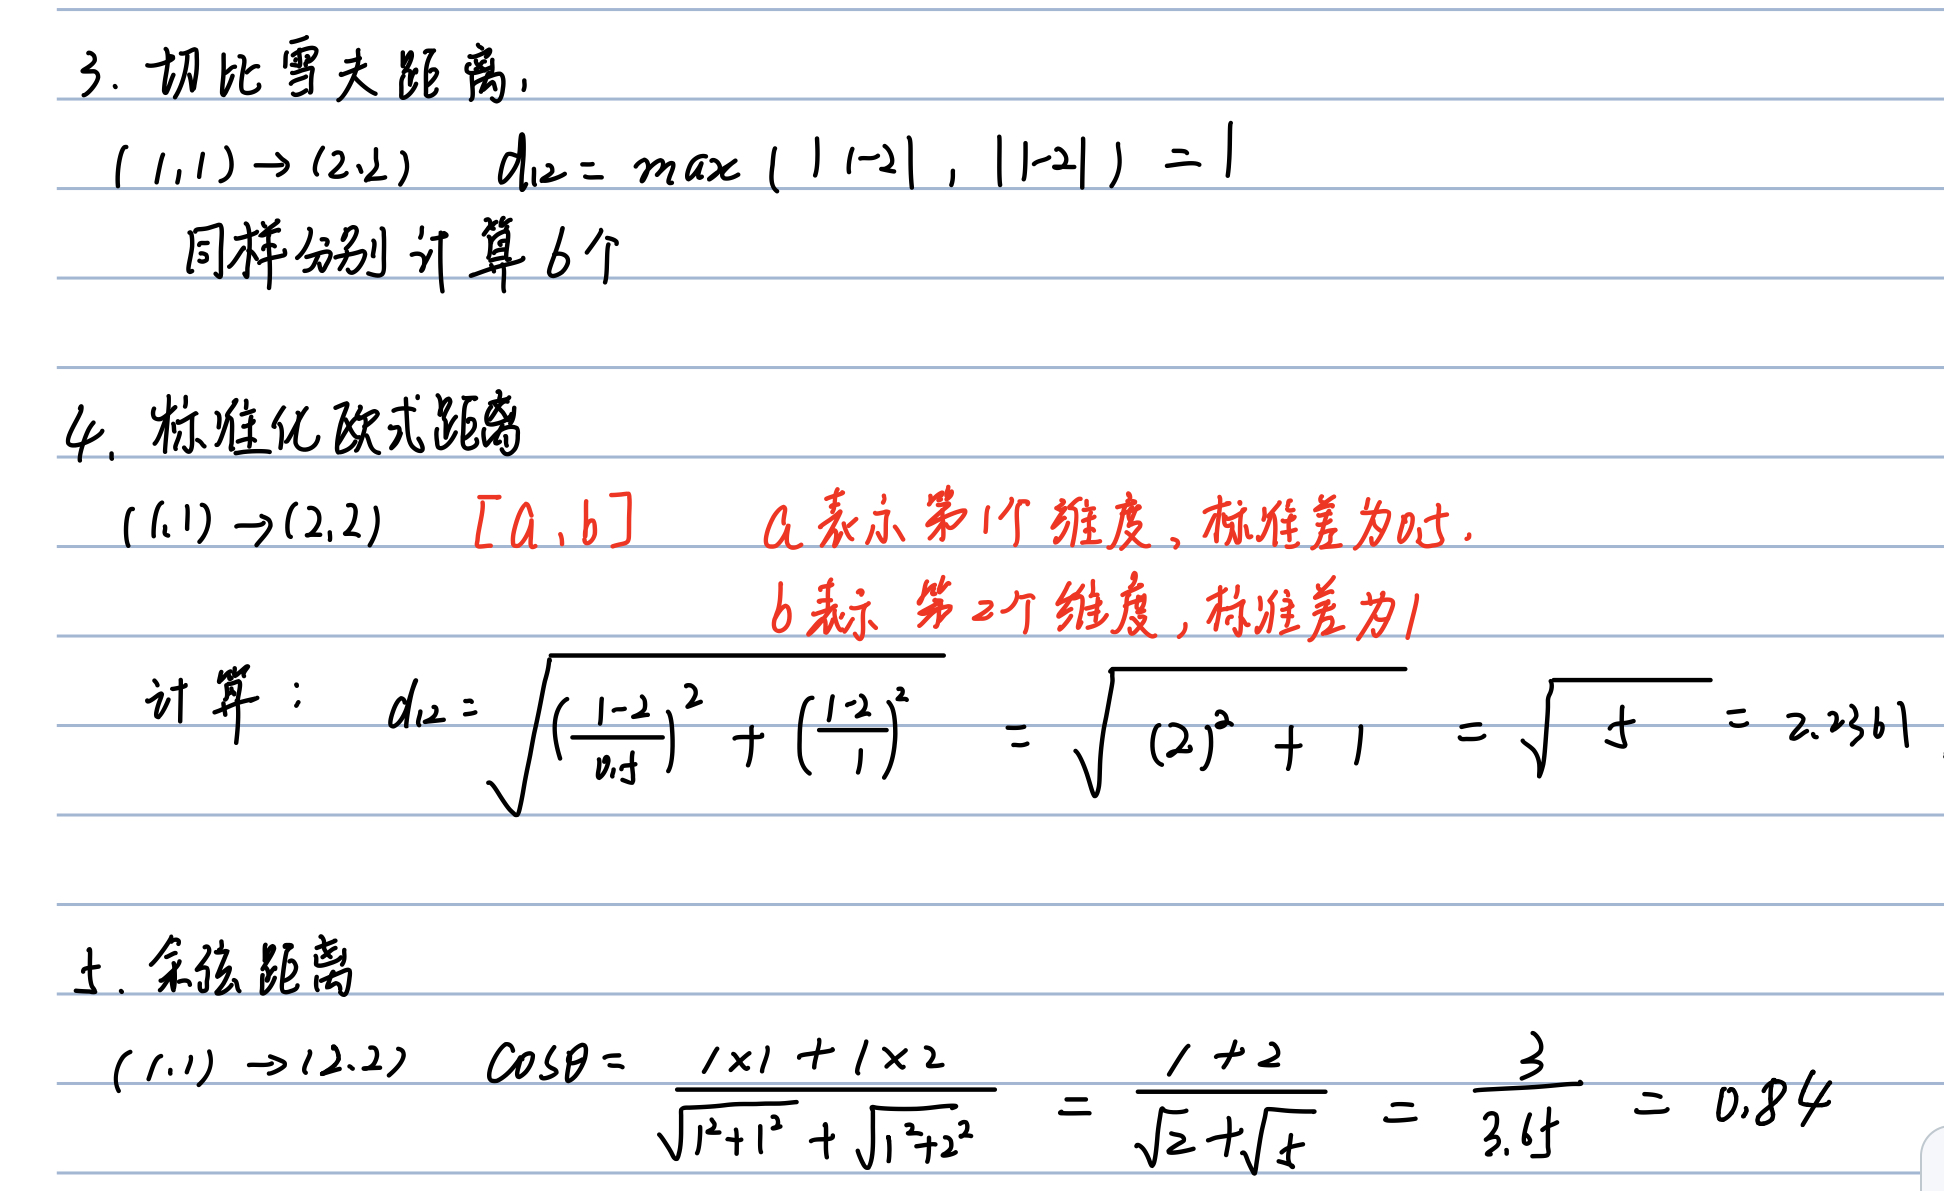 3. 切比雪夫距离,
(1,1)→(2,2) d₁₂ = max(|1-2|, |1-2|) = 1
同样分别计算6个
4. 标准化欧式距离
(1,1)→(2,2) [a,b] a表示第1个维度,标准差为0.5.
b表示第2个维度,标准差为1
计算: d₁₂ = √((1-2)/0.5)² + ((1-2)/1)² = √(2)² + 1 = √5 = 2.2361
5. 余弦距离
(1,1)→(2,2) cosθ = (1×1+1×2)/(√1²+1² + √1²+2²) = (1+2)/(√2+√5) = 3/3.65 = 0.84